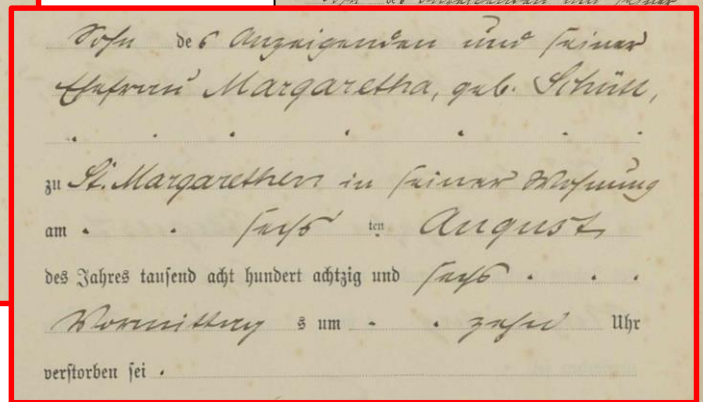 Sohn des Anzeigenden und seiner
Ehefrau Margaretha, geb. Schüll,
zu St. Margarethen in seiner Wohnung
am sechs ten August
des Jahres tausend acht hundert achtzig und sechs
Vormittag s um zehn Uhr
verstorben sei.